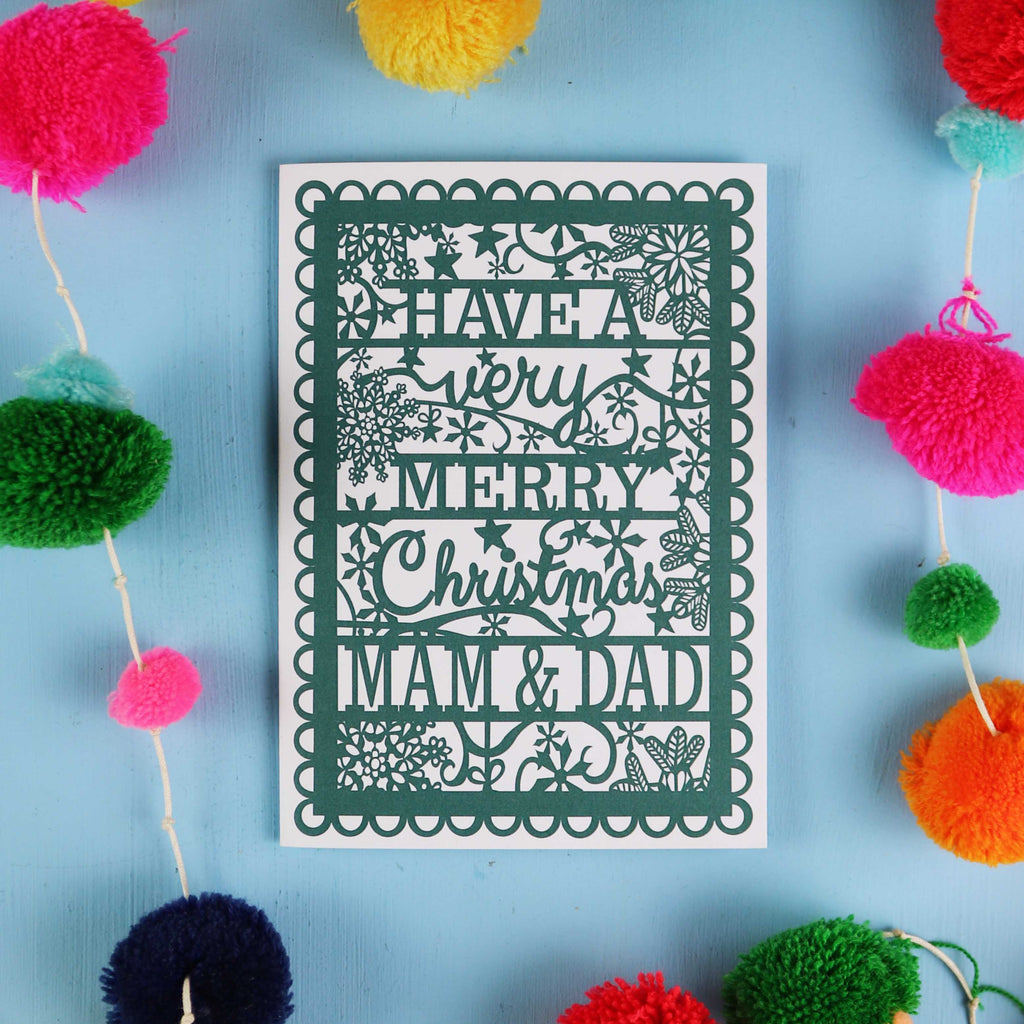 HAVE A
very
MERRY
Christmas
MAM & DAD